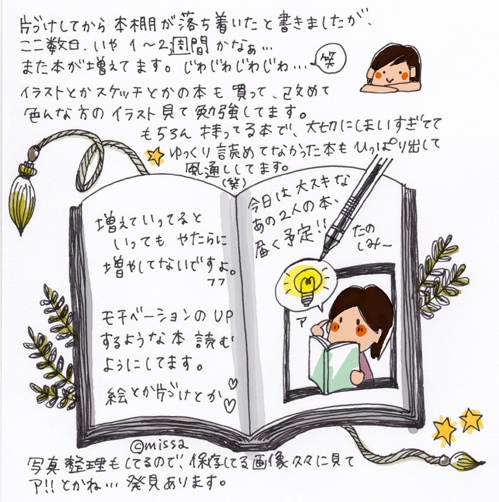 片づけしてから本棚が落ち着いたと書きましたが、
ここ数日、いや1〜2週間かなぁ…
また本が増えてます。じわじわじわ…
笑
イラストとかスケッチとかの本も買って、改めて
色んな方のイラスト見て勉強してます。
もちろん持ってる本で、大切にしまいすぎてて
ゆっくり読めてなかった本もひっぱり出して
風通ししてます。
(笑)
増えていってると
いってもやたらに
増やしてないですよ。
フフ
モチベーションのUP
するような本読む
ようにしてます。
絵とか片づけとか♡♡
今日は大スキな
あの2人の本、
届く予定!!
たの
しみ〜
ア
©missa
写真整理もしてるので、保存してる画像久々に見て
ア!!とかね…発見あります。